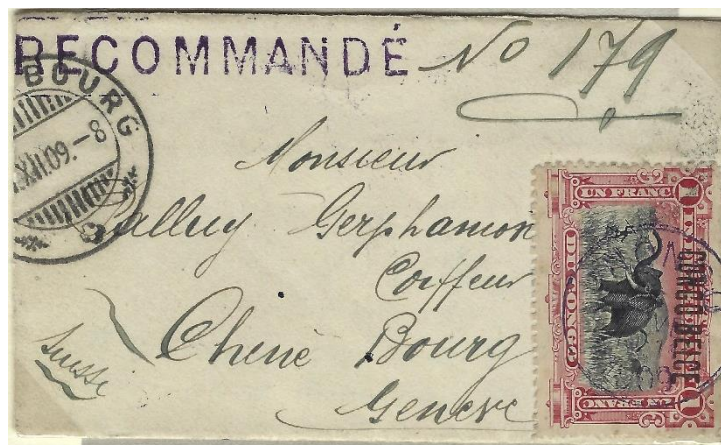 RECOMMANDÉ No 179
BOURG
XII.09.-8
Monsieur
Gerphamon
Coiffeur
Chene Bourg
Genève
Suisse
UN FRANC
DU CONGO
CONGO BELGE
UN FRANC
1
1